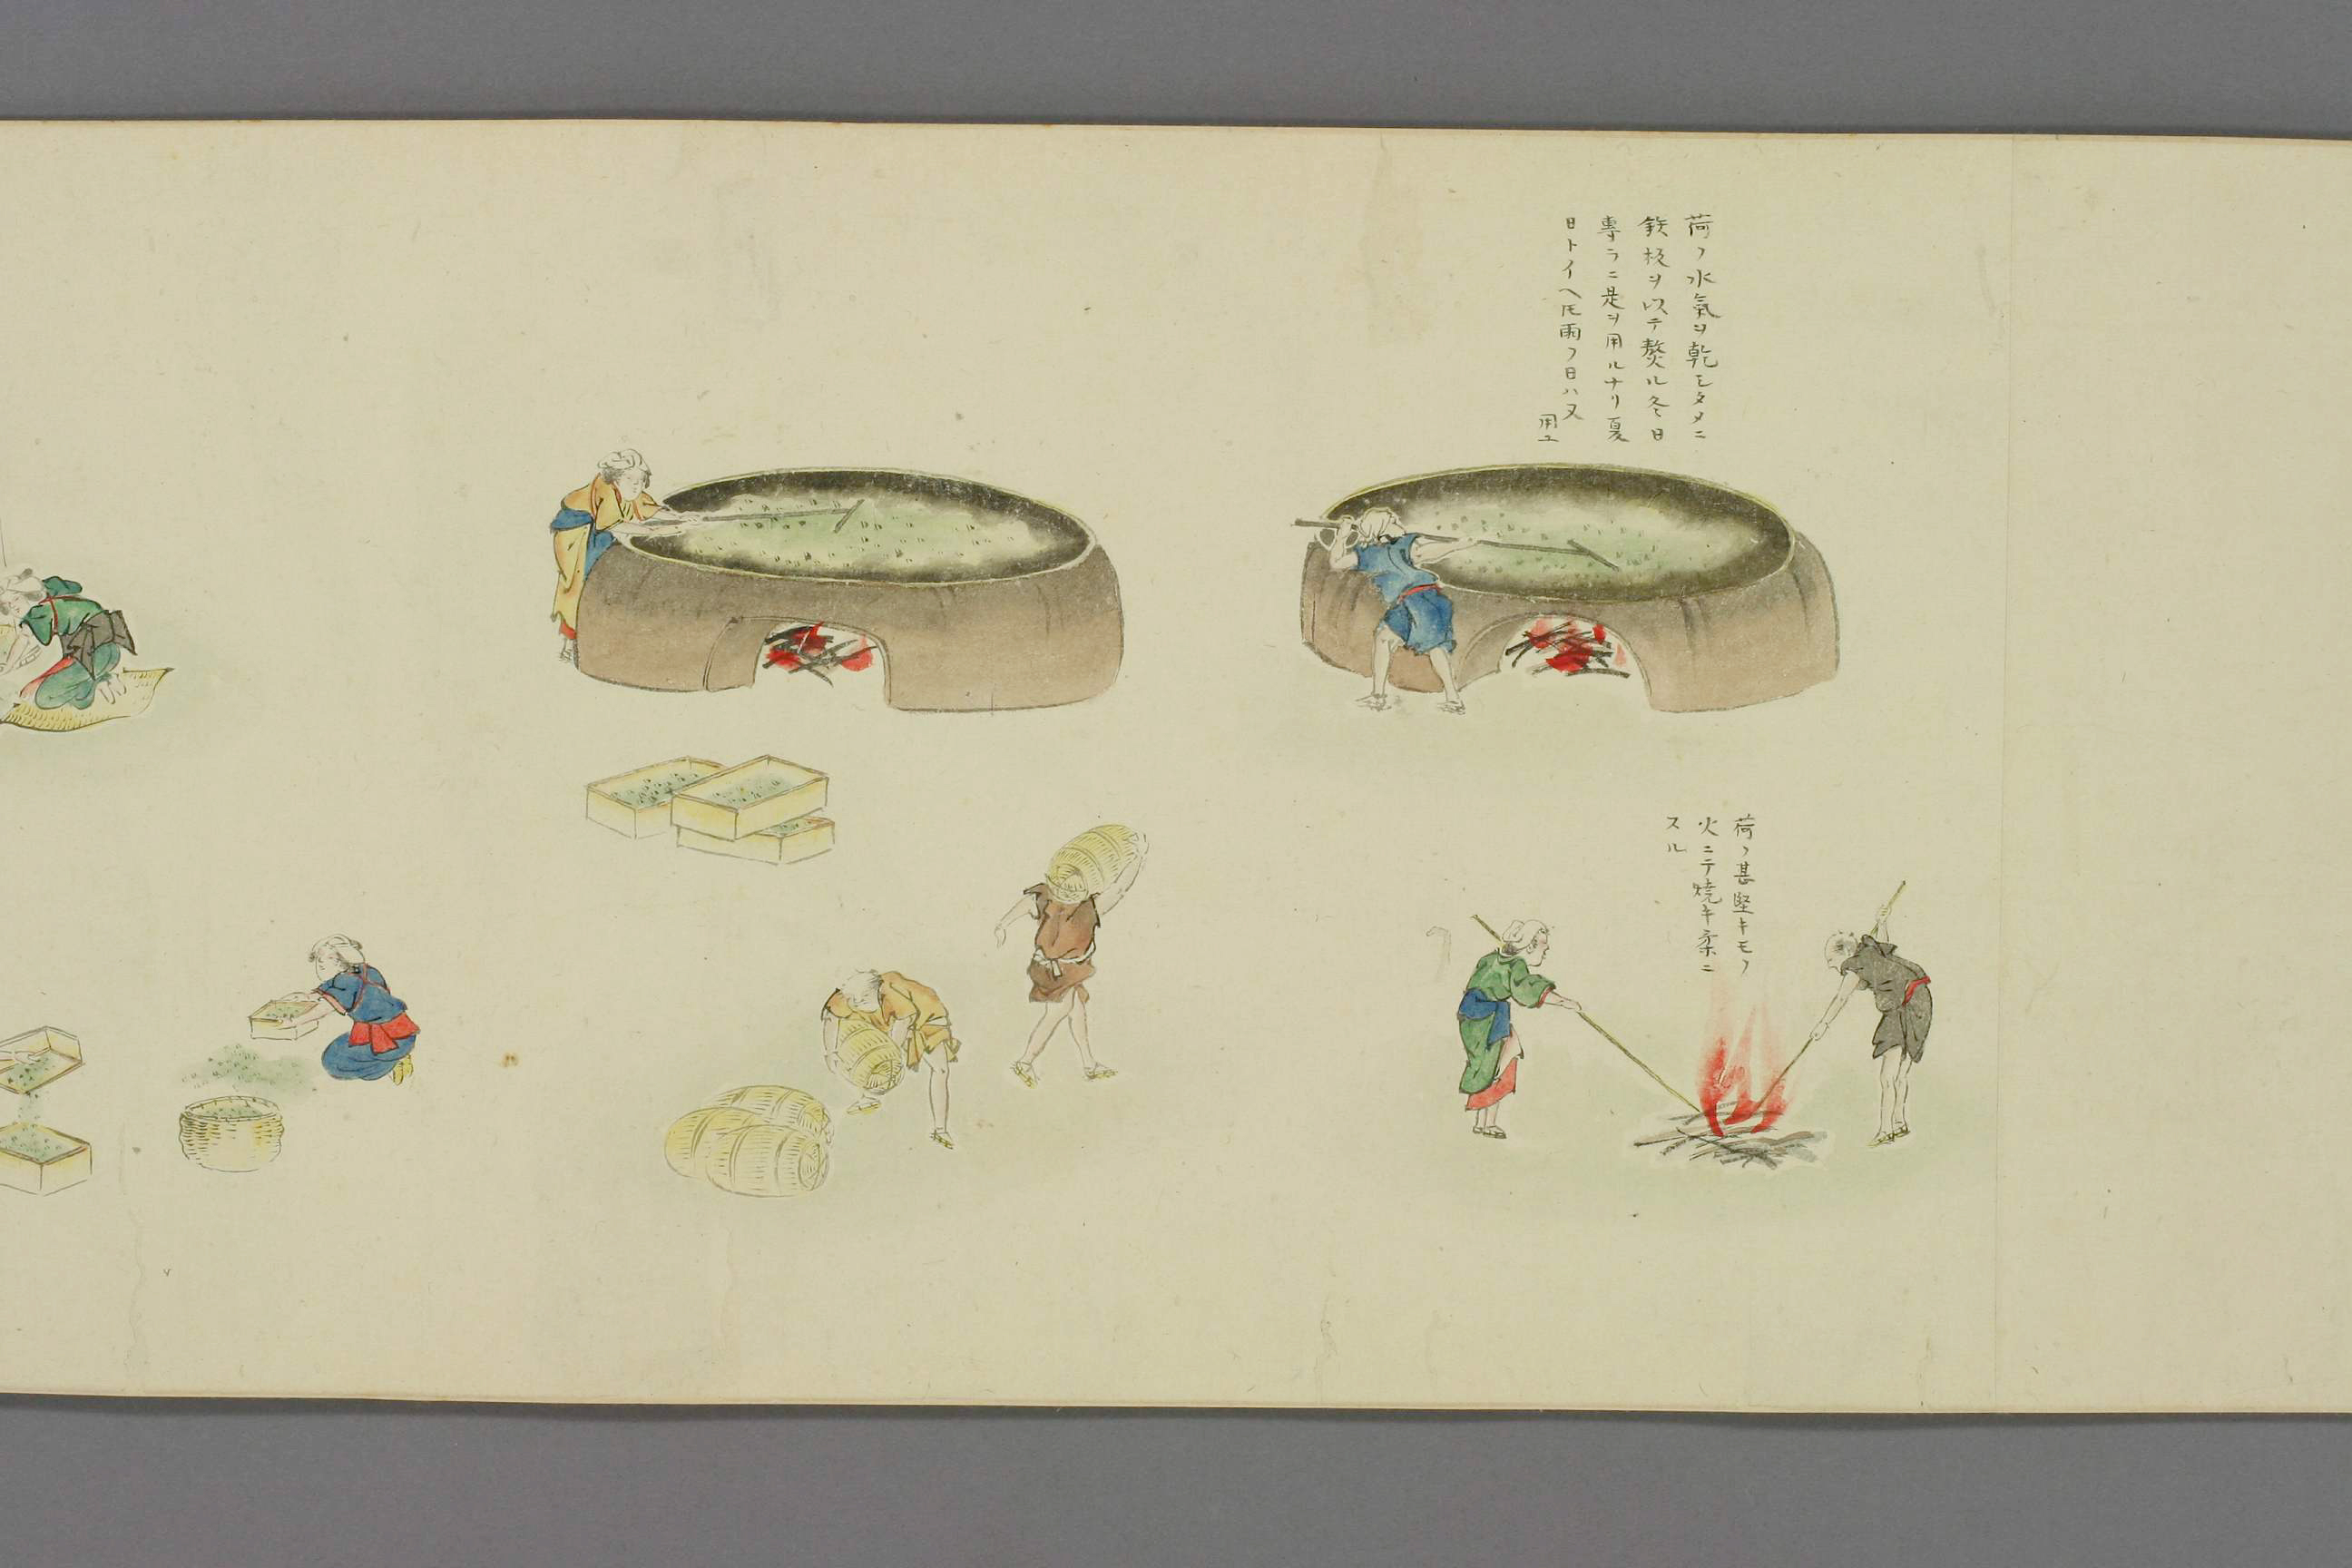 荷ノ水氣ヲ乾モタメニ
鉄板ヲ以テ熬ル冬日
專ラニ是ヲ用ルナリ夏
日トイヘ𪜈雨ノ日ハ又
用ユ
荷ノ甚堅キモノ
火ニテ焼キ柔ニ
スル